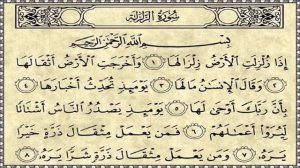 سُورَةُ الزَّلْزَلَةِ
بِسْمِ اللَّهِ الرَّحْمَٰنِ الرَّحِيمِ
إِذَا زُلْزِلَتِ ٱلْأَرْضُ زِلْزَالَهَا ١ وَأَخْرَجَتِ ٱلْأَرْضُ أَثْقَالَهَا
٢ وَقَالَ ٱلْإِنسَٰنُ مَا لَهَا ٣ يَوْمَئِذٍ تُحَدِّثُ أَخْبَارَهَا ٤
بِأَنَّ رَبَّكَ أَوْحَىٰ لَهَا ٥ يَوْمَئِذٍ يَصْدُرُ ٱلنَّاسُ أَشْتَاتًا
لِّيُرَوْا۟ أَعْمَٰلَهُمْ ٦ فَمَن يَعْمَلْ مِثْقَالَ ذَرَّةٍ خَيْرًا
يَرَهُۥ ٧ وَمَن يَعْمَلْ مِثْقَالَ ذَرَّةٍ شَرًّا يَرَهُۥ ٨